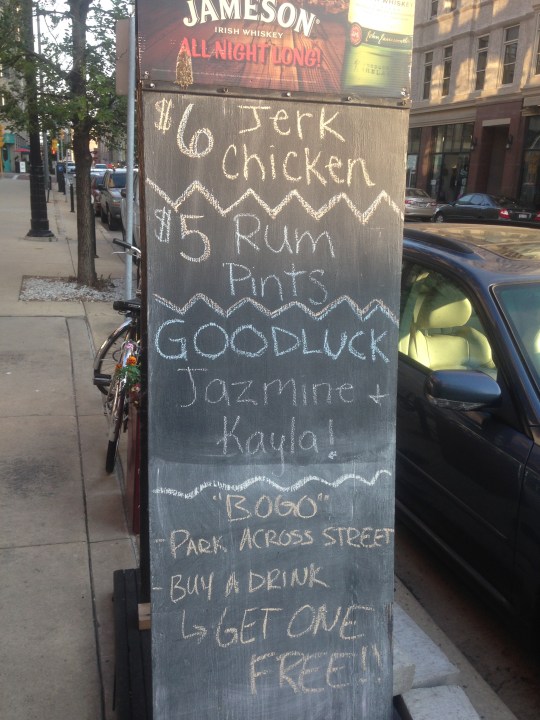 JAMESON
IRISH WHISKEY
ALL NIGHT LONG!
$6 Jerk
Chicken
$5 Rum
Pints
GOODLUCK
Jazmine +
Kayla!
"BOGO"
- PARK ACROSS STREET
- BUY A DRINK
↳ GET ONE
FREE!!